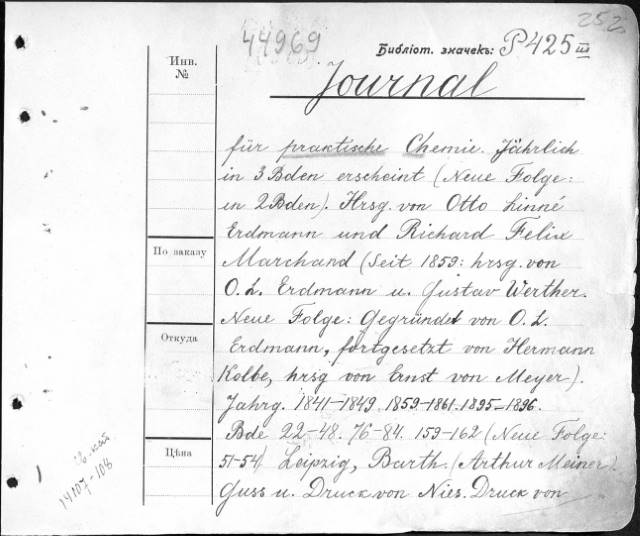 252
44969 Библіот. значекъ: P425 III
Инв.
№
Journal
für praktische Chemie. Jährlich
in 3 Bden erscheint (Neue Folge:
in 2 Bden). Hrsg. von Otto Linné
Erdmann und Richard Felix
По заказу
Marchand (Seit 1859: hrsg. von
O. L. Erdmann u. Gustav Werther.
Neue Folge: Gegründet von O. L.
Откуда
Erdmann, fortgesetzt von Hermann
Kolbe, hrsg von Ernst von Meyer).
Jahrg. 1841-1849. 1859-1861. 1895-1896.
Bde 22-48. 76-84. 159-162 (Neue Folge:
Цѣна
51-54) Leipzig, Barth. (Arthur Meiner).
Guss u. Druck von Nies. Druck von
14107-108